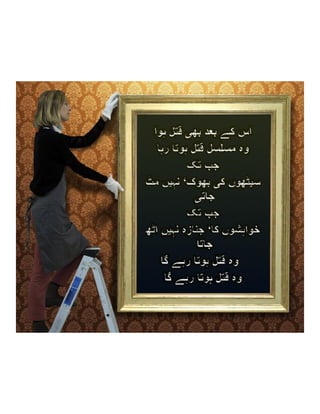 اس کے بعد بھی قتل ہوا
وہ مسلسل قتل ہوتا رہا
جب تک
سیٹھوں کی بھوک‘ نہیں مٹ
جاتی
جب تک
خواہشوں کا‘ جنازہ نہیں اٹھ
جاتا
وہ قتل ہوتا رہے گا
وہ قتل ہوتا رہے گا